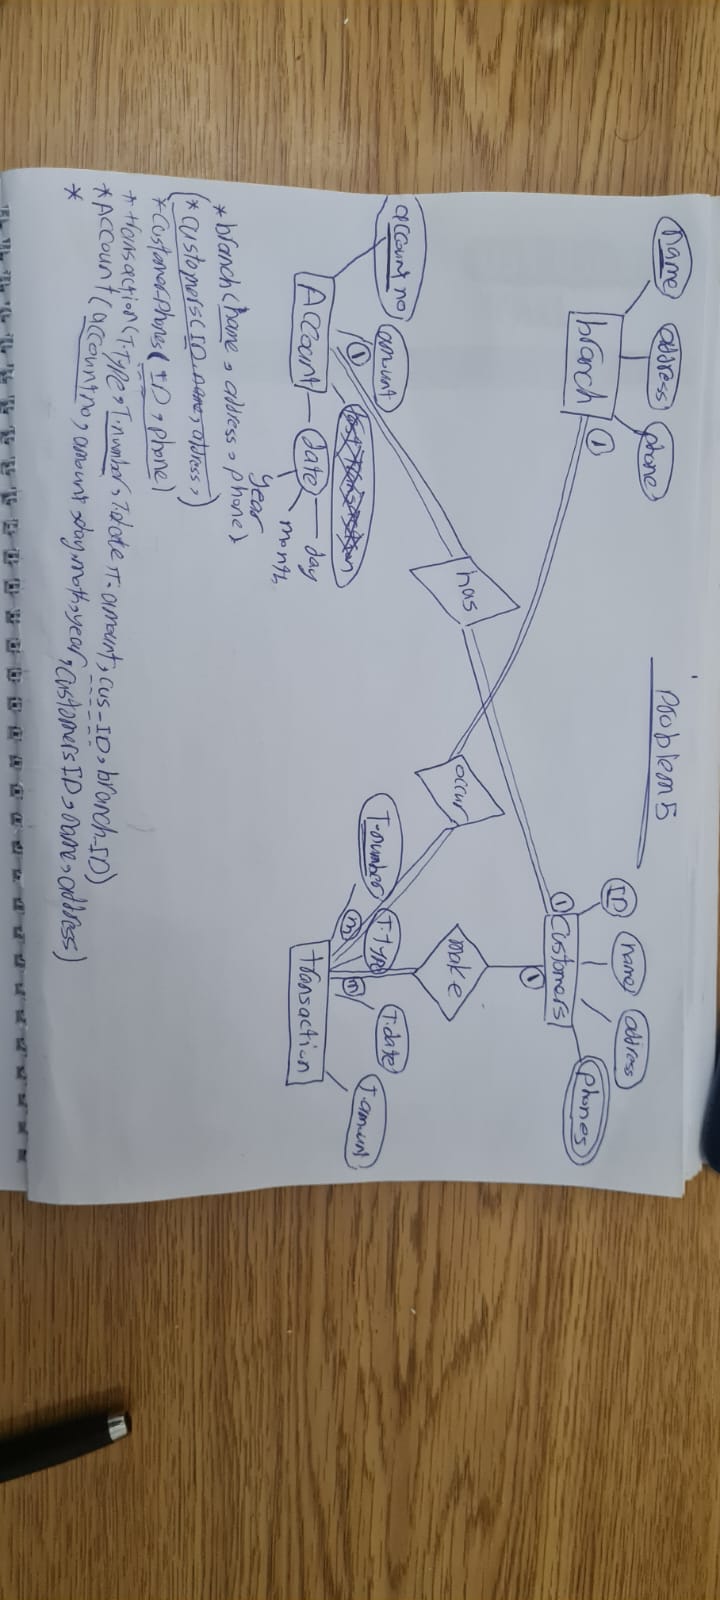 Problem 5
name
address
phone
branch
1
ID
name
address
phones
1 Customers
1
has
occur
make
account no
amount
1
Account
date
day
month
year
T-number
T.Type
T.date
T.amount
m
m
transaction
* branch(name, address, phone)
(* customers(ID, name, address,)
* Customer-Phones(ID, phone)
* transaction(T.Type, T.number, T.date, T. amount, cus_ID, branch_ID)
* Account(account no, amount, day, moth, year, customers ID, name, address)
*